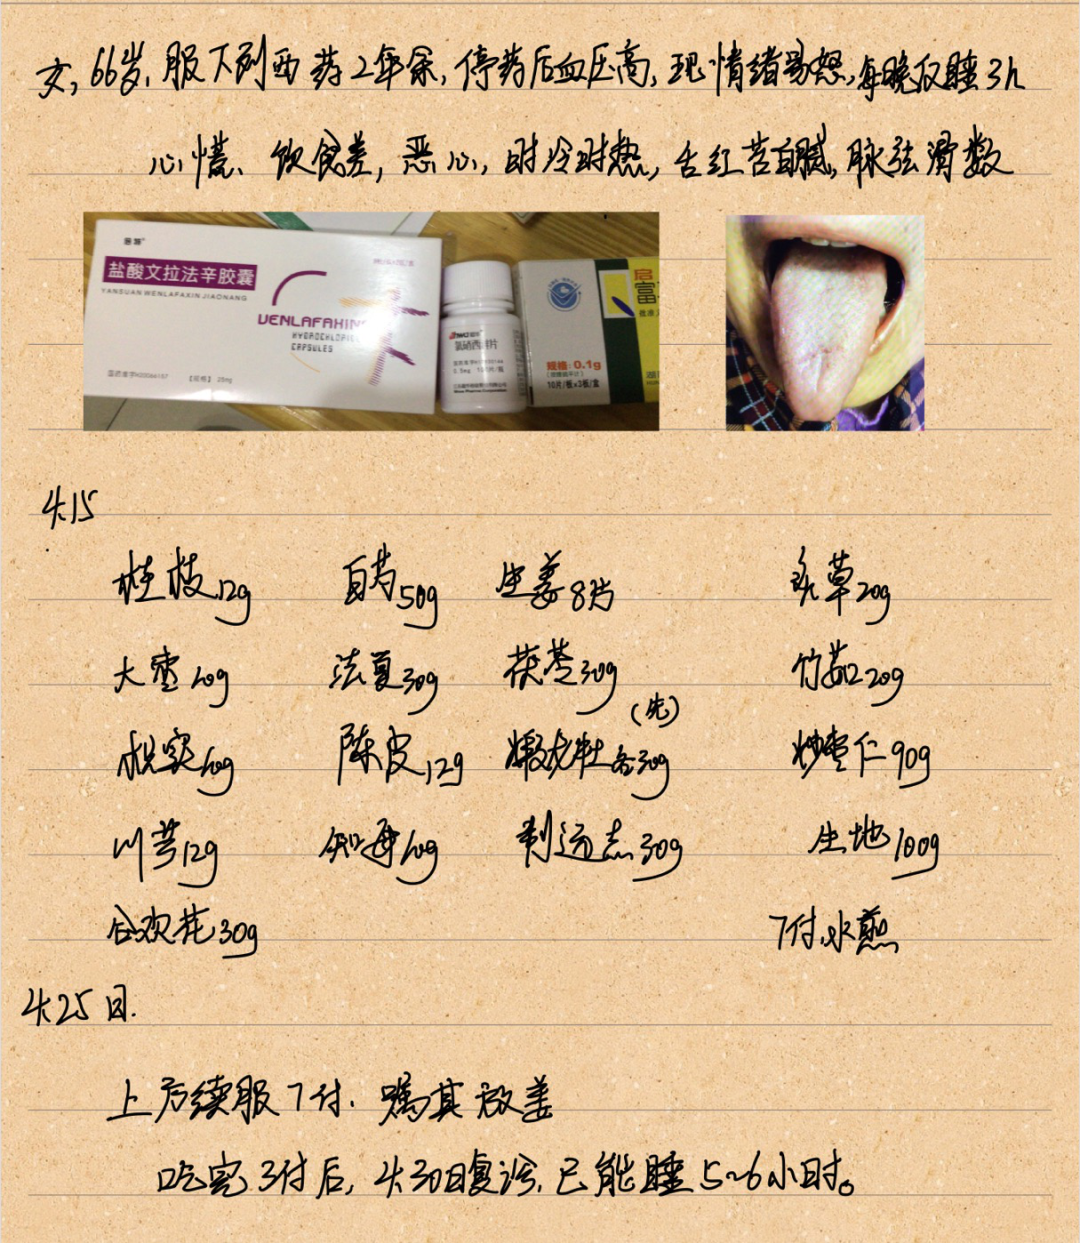 女，66岁，服下列西药2年余，停药后血压高，现情绪易怒，每晚仅睡3h
心慌、饮食差，恶心，时冷时热，舌红苔白腻，脉弦滑数
盐酸文拉法辛胶囊
YANSUAN WENLAFAXIN JIAONANG
VENLAFAXINE
HYDROCHLORIDE
CAPSULES
国药准字H20066157
【规格】25mg
氯硝西泮片
规格：0.1g
10片/板x3板/盒
4.15
桂枝12g 白芍50g 生姜8片 炙草20g
大枣10g 法夏30g 茯苓30g 竹茹20g
(先)
枳实10g 陈皮12g 煅龙牡各30g 炒枣仁90g
川芎12g 知母10g 制远志30g 生地100g
合欢花30g 7付.水煎
4.25日.
上方续服7付. 嘱其放姜
吃完3付后，4.30日复诊.已能睡5~6小时。